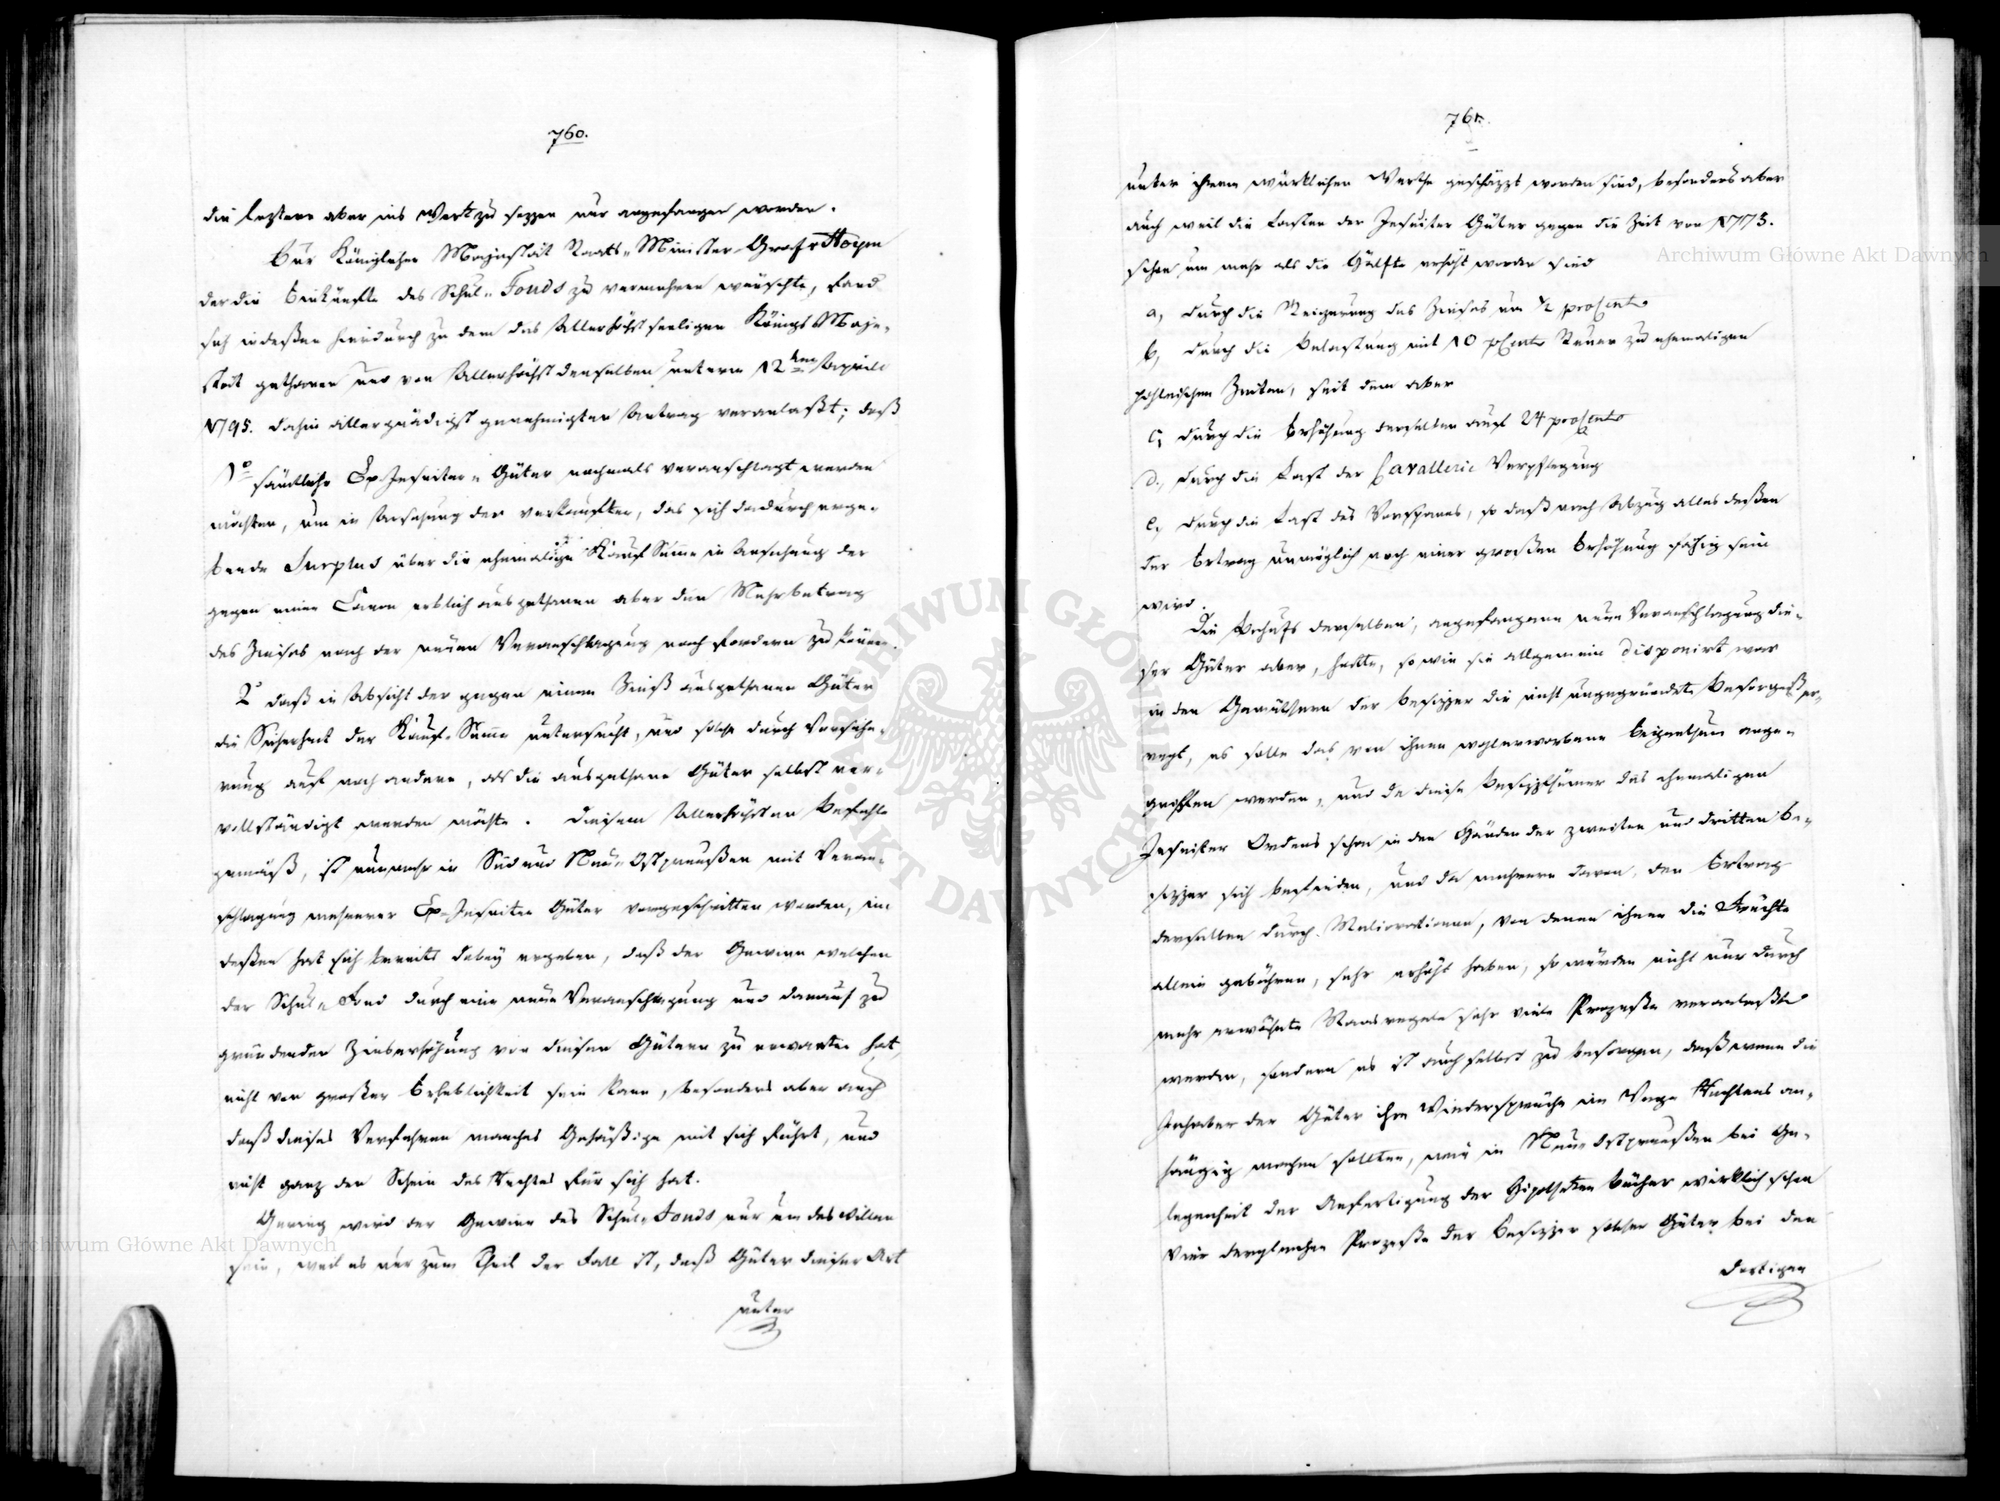 760.
die leztere aber ins Werk zu sezzen nur angefangen worden.
Eur Königlicher Majestät Staats-Minister Graf v Hoym
der die Einkünfte des Schul-Fonds zu vermehren wünschte, fand
sich indeßen hierdurch zu dem des Allerhöchst seeligen Königs Maje-
stät gethanen und von Allerhöchst denselben unterm 12ten Aprill
1795. dahin allergnädigst genehmigten Antrag veranlaßt; daß
1o sämtliche Ex-Jesuiter-Güter nochmals veranschlagt werden
möchten, um in Ansehung der verkauften, das sich dadurch erge-
bende Surplus über die ehemalige Kauf Summe in Ansehung der
gegen einen Canon erblich ausgethanen aber den Mehrbetrag
des Zinses nach der neuen Veranschlagung nach fordern zu können.
2o daß in Absicht der gegen einen Zinß ausgethanen Güter
die Sicherheit der Kauf-Summe untersucht, und solche durch Versiche-
rung auf noch andere, als die ausgethane Güter selbst ver-
vollständigt werden möchte. Diesem Allerhöchsten Befehle
gemäß, ist nunmehr in Süd und Neu-Ostpreußen mit Veran-
schlagung mehrerer Ex-Jesuiter Güter vorgeschritten worden, in
deßen hat sich bereits dabey ergeben, daß der Gewinn welchen
der Schul-Fond durch eine neue Veranschlagung und darauf zu
gründenden Zinserhöhung von diesen Gütern zu erwarten hat,
nicht von großer Erheblichkeit sein kann, besonders aber auch
daß dieses Verfahren manches Gehäßige mit sich führt, und
nicht ganz den Schein des Rechtes für sich hat.
Gering wird der Gewinn des Schul-Fonds nur um deswillen
sein, weil es nur zum Theil der Fall ist, daß Güter dieser Art
unter
761.
unter ihrem würklichen Werthe geschäzzt worden sind, besonders aber
auch weil die Lasten der Jesuiter Güter gegen die Zeit von 1773.
schon um mehr als die Hälfte erhöht worden sind
a, durch die Steigerung des Zinses um ½ proCent
b, durch die Belastung mit 10 pCent Steuer zu ehemaligen
pohlnischen Zeiten, seit dem aber
c, durch die Erhöhung derselben auf 24 proCent
d., durch die Last der Cavallerie Verpflegung
e, durch die Last des Vorspanns, so daß nach Abzug alles deßen
der Ertrag unmöglich noch einer großen Erhöhung fähig sein
wird.
Die Behufs derselben, angefangene neue Veranschlagung die-
ser Güter aber, hatte, so wie sie allgemein disponirt war
in den Gemüthern der Besizzer die nicht ungegründete Besorgniß er-
regt, es solle das von ihnen wohlerworbene Eigenthum ange-
griffen werden, und da diese Besizzthümer des ehemaligen
Jesuiter Ordens schon in den Händen der zweiten und dritten Be-
sizzer sich befinden, und da mehrere davon, den Ertrag
derselben durch Meliorationen, von denen ihnen die Früchte
allein gebühren, sehr erhöht haben, so würden nicht nur durch
mehr erwähnte Maasregeln sehr viele Prozeße veranlaßt
werden, sondern es ist auch selbst zu besorgen, daß wenn die
Inhaber der Güter ihre Widersprüche im Wege Rechtens an-
hängig machen sollten, wie in Neu-Ostpreußen bei Ge-
legenheit der Anfertigung der Hipotheken bücher wirklich schon
vier dergleichen Prozeße der Besizzer solcher Güter bei den
dortigen
ARCHIWUM GŁÓWNE AKT DAWNYCH
Archiwum Główne Akt Dawnych
Archiwum Główne Akt Dawnych